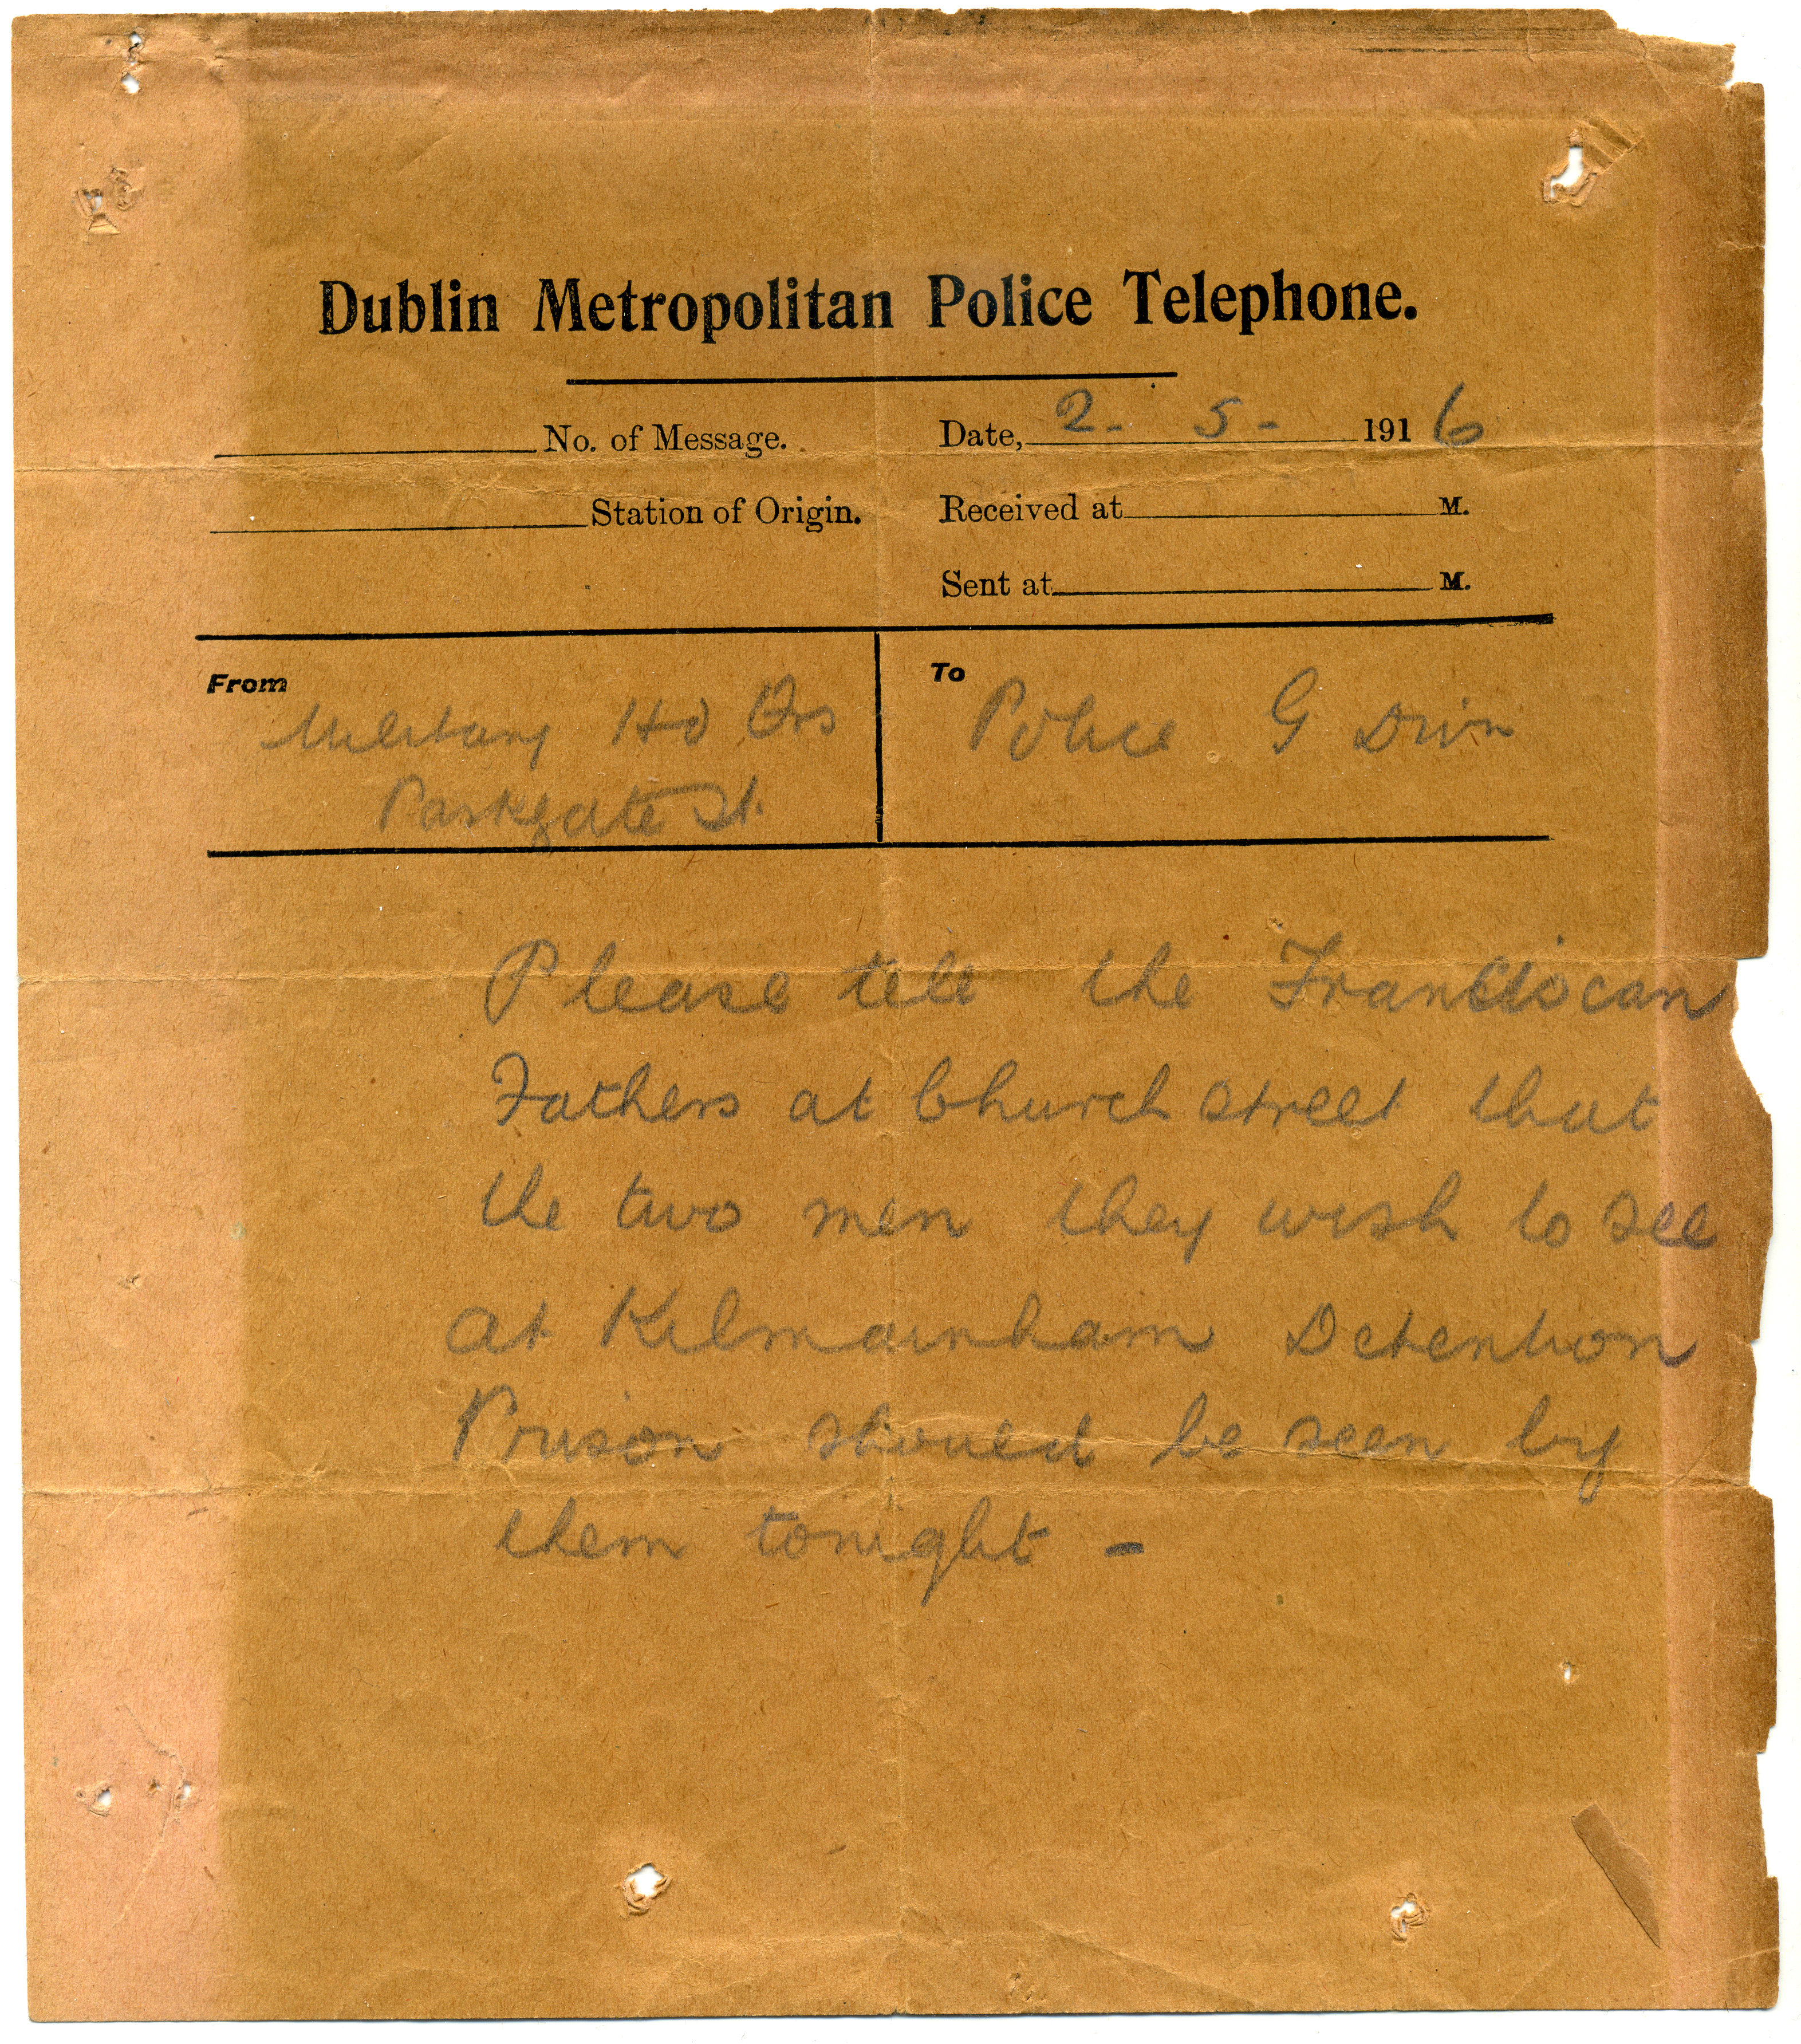 Dublin Metropolitan Police Telephone.
No. of Message.
Date, 2 - 5 - 1916
Station of Origin.
Received at M.
Sent at M.
From
Military Hd Qrs
Parkgate St.
To
Police G Divn
Please tell the Franciscan
Fathers at Church street that
the two men they wish to see
at Kilmainham Detention
Prison should be seen by
them tonight -